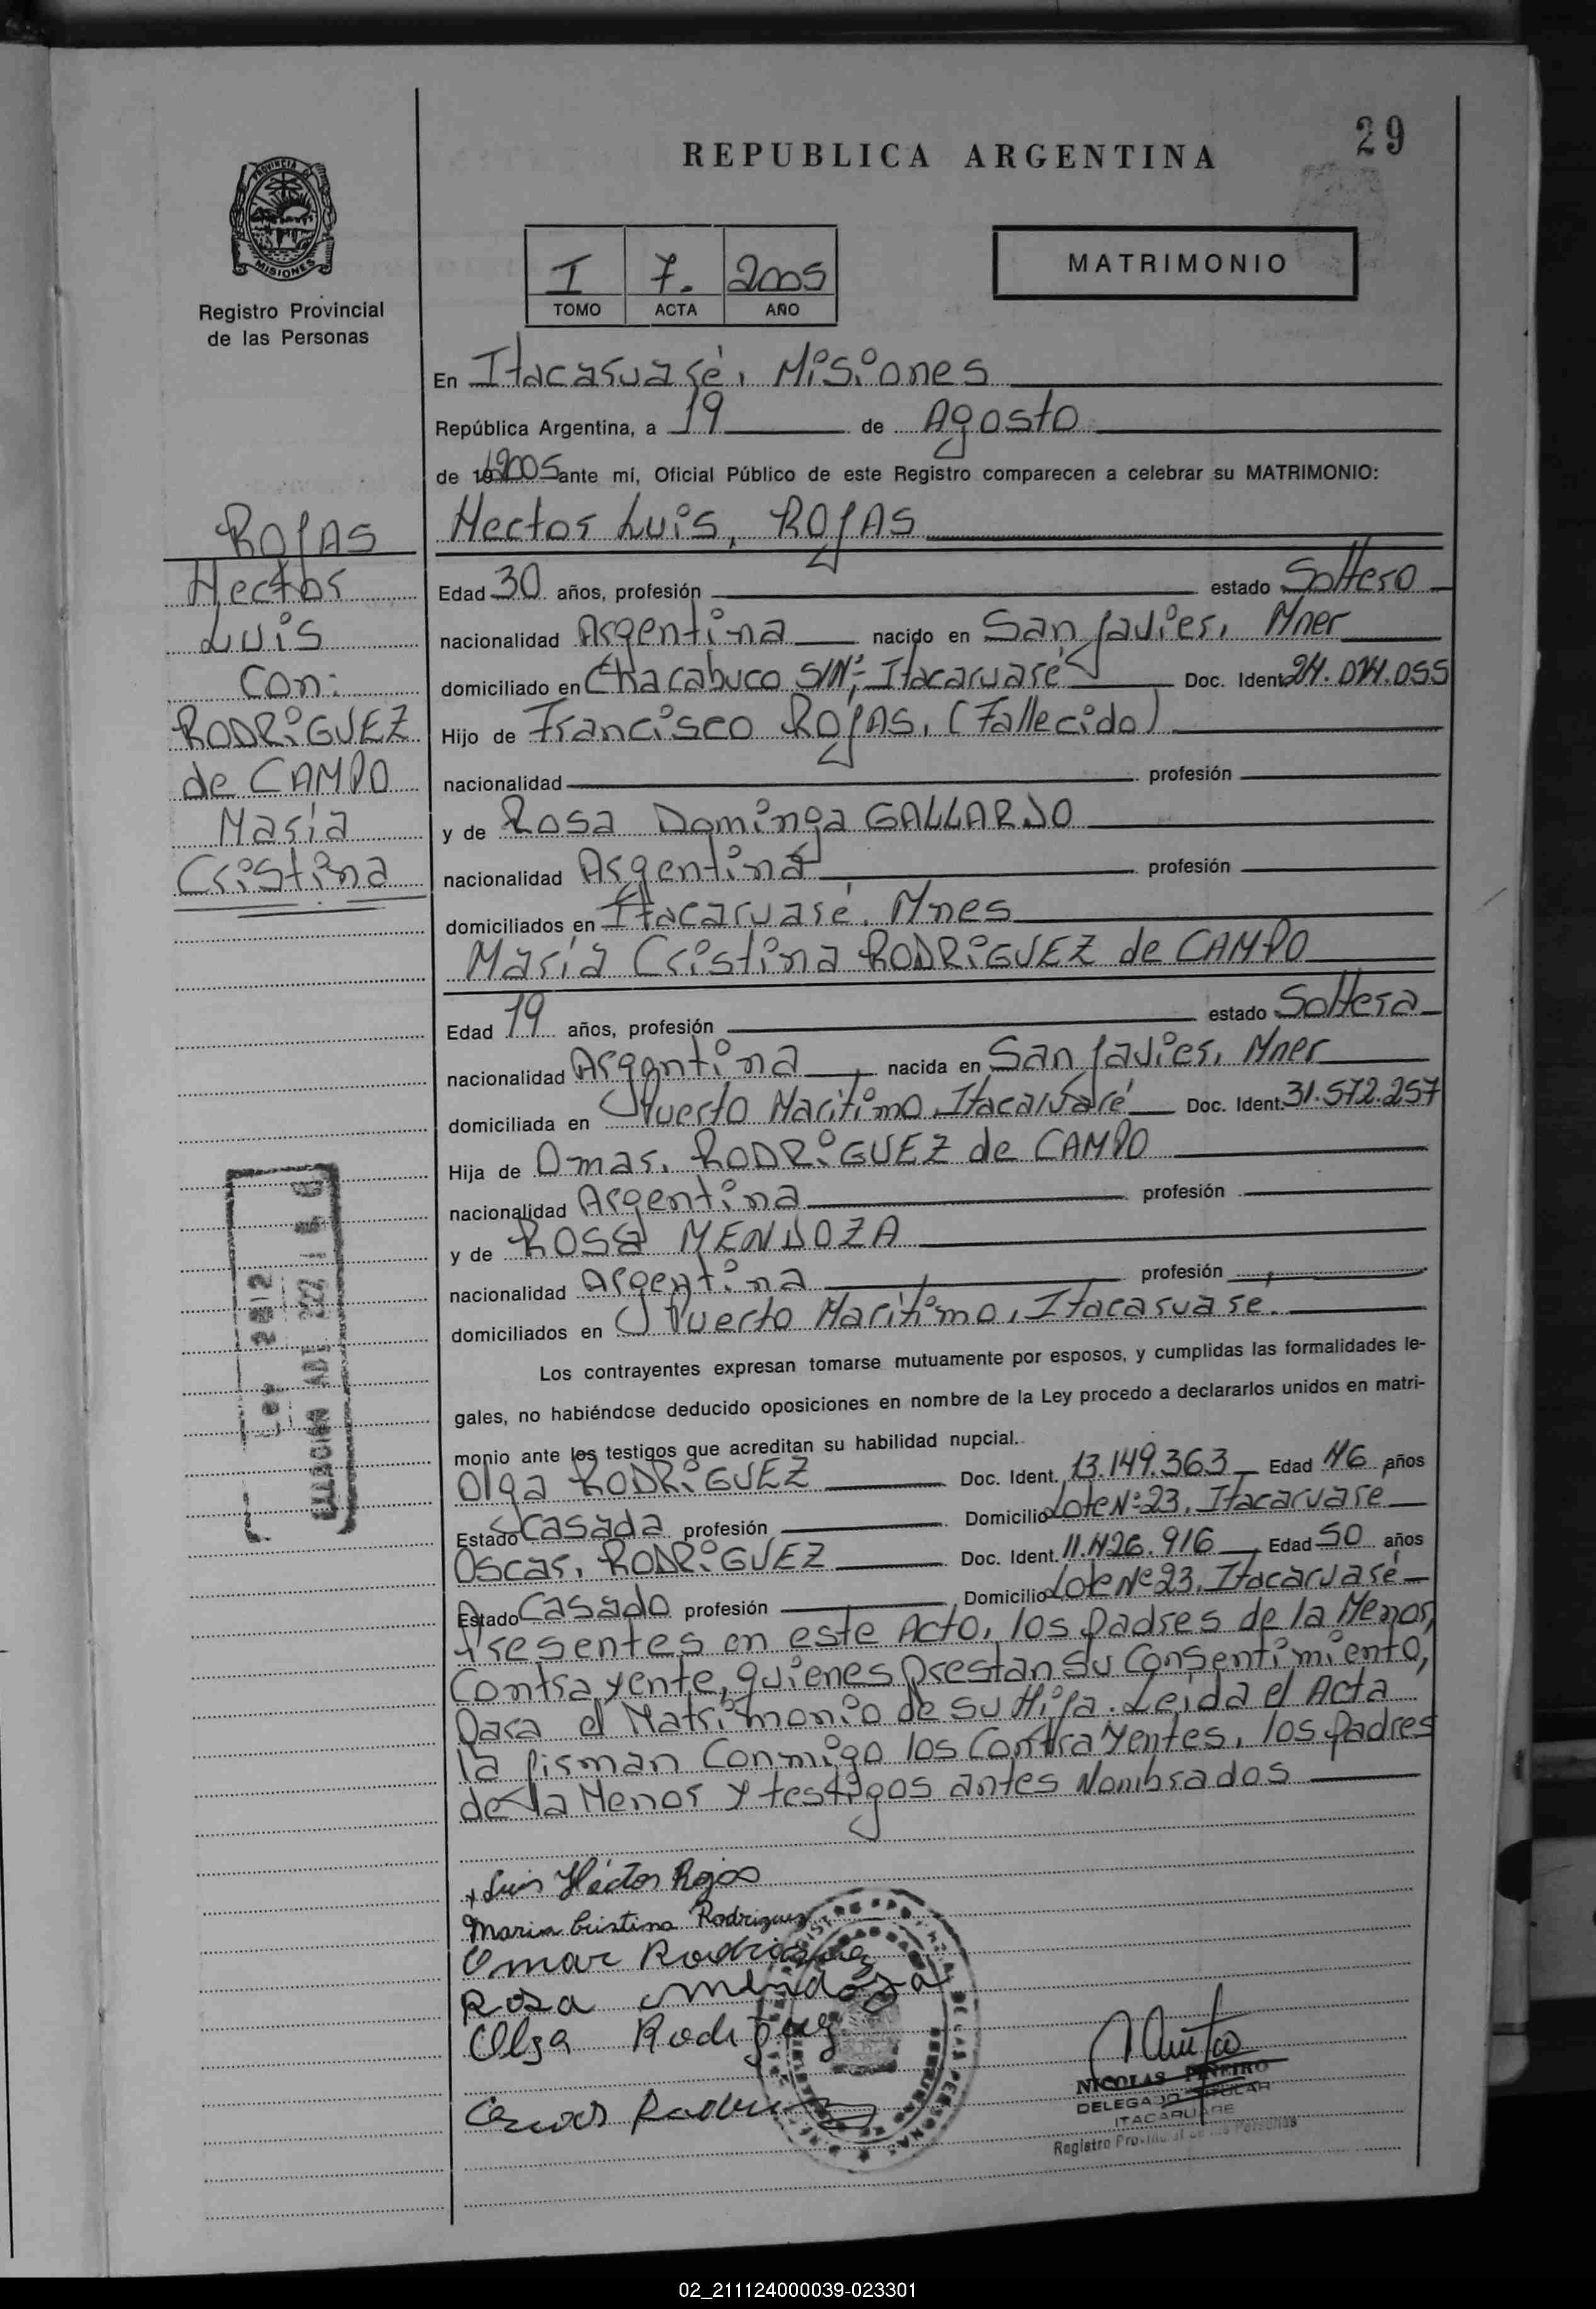 29
REPUBLICA ARGENTINA
PROVINCIA DE
MISIONES
Registro Provincial
de las Personas
I 7. 2005
TOMO ACTA AÑO
MATRIMONIO
En Itacaruaré, Misiones
República Argentina, a 19 de Agosto
de 19 2005 ante mí, Oficial Público de este Registro comparecen a celebrar su MATRIMONIO:
Hector Luis, ROJAS
ROJAS
Hector
Luis
Con:
RODRiGUEZ
de CAMPO
María
Cristina
Edad 30 años, profesión estado Soltero
nacionalidad Argentina nacido en San Javier, Mnes
domiciliado en Chacabuco S/Nº, Itacaruaré Doc. Ident. 24.014.055
Hijo de Francisco ROJAS, (Fallecido)
nacionalidad profesión
y de Rosa Dominga GALLARDO
nacionalidad Argentina profesión
domiciliados en Itacaruaré, Mnes
María Cristina RODRiGUEZ de CAMPO
Edad 19 años, profesión estado Soltera
nacionalidad Argentina nacida en San Javier, Mnes
domiciliada en Puerto Marítimo, Itacaruaré Doc. Ident. 31.572.257
Hija de Omar, RODRiGUEZ de CAMPO
nacionalidad Argentina profesión
y de ROSA MENDOZA
nacionalidad Argentina profesión
domiciliados en Puerto Marítimo, Itacaruaré.
Los contrayentes expresan tomarse mutuamente por esposos, y cumplidas las formalidades le-
gales, no habiéndose deducido oposiciones en nombre de la Ley procedo a declararlos unidos en matri-
monio ante los testigos que acreditan su habilidad nupcial.
Olga RODRiGUEZ Doc. Ident. 13.149.363 Edad 46 años
Estado Casada profesión Domicilio Lote Nº 23, Itacaruaré
Oscar, RODRiGUEZ Doc. Ident. 11.426.916 Edad 50 años
Estado Casado profesión Domicilio Lote Nº 23, Itacaruaré
Presentes en este Acto, los padres de la Menor,
Contrayente, quienes prestan su Consentimiento,
para el Matrimonio de su Hija. Leida el Acta
la firman Conmigo los Contrayentes, los padres
de la Menor y testigos antes Nombrados
Luis Héctor Rojas
Maria Cristina Rodriguez
Omar Rodriguez
Rosa Mendoza
Olga Rodriguez
NICOLAS PIÑEIRO
DELEGADO TITULAR
ITACARUARE
Registro Provincial de las Personas
02_211124000039-023301